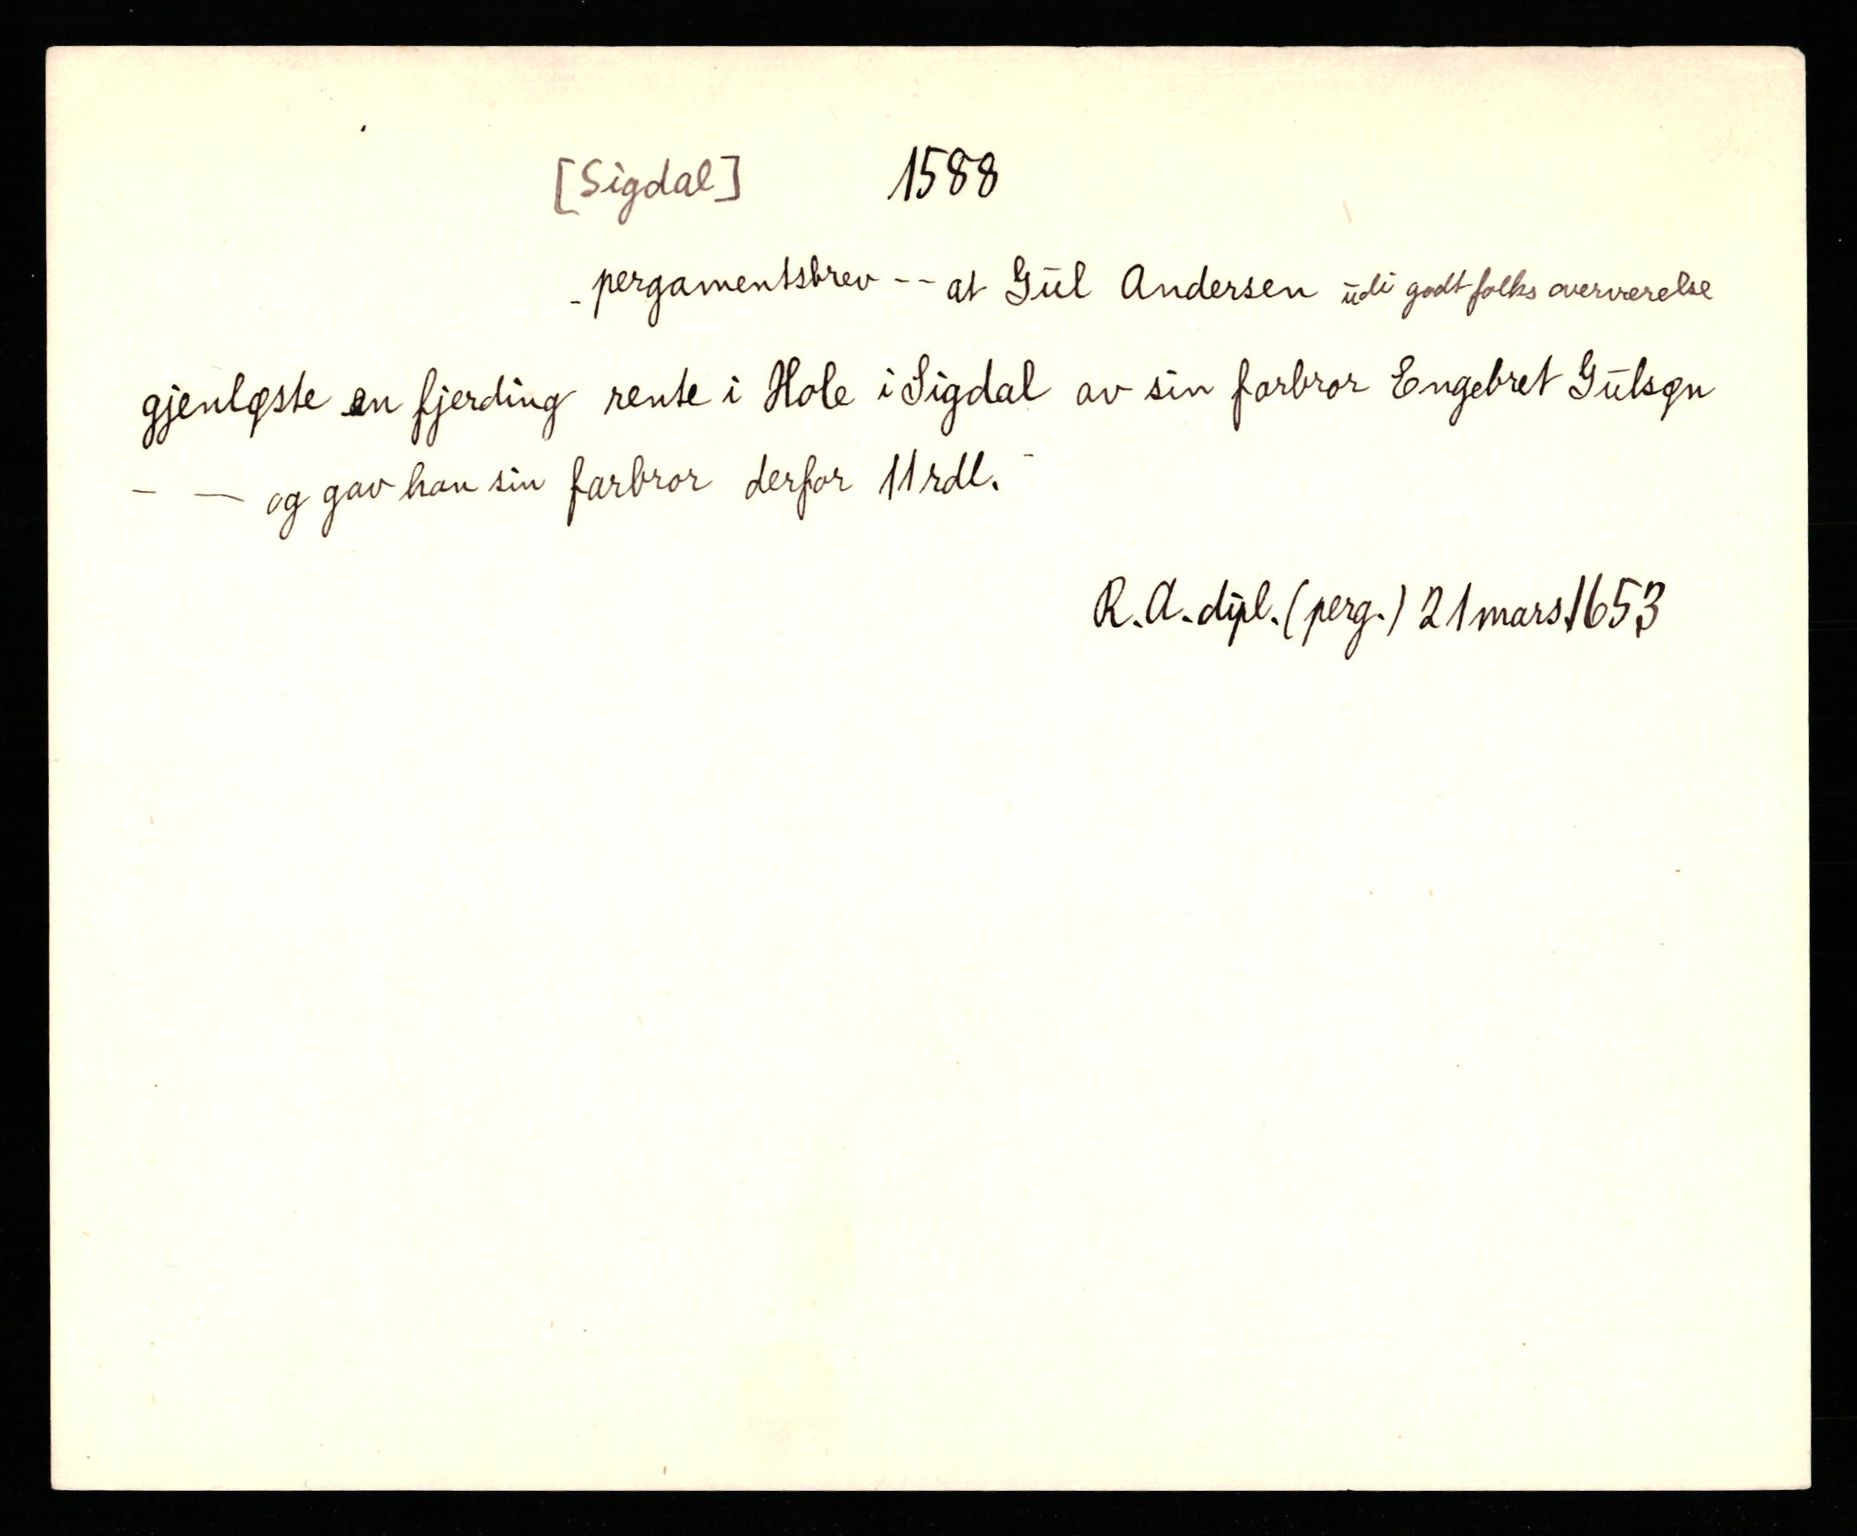 [Sigdal] 1588
- pergamentsbrev -- at Gūl Andersen ūdi godtfolks overværelse
gjenløste en fjerding rente i Hole i Sigdal av sin farbror Engebret Gūlsøn
- — og gav han sin farbror derfor 11 rdl. -
R.A. dipl. (perg.) 21 mars 1653